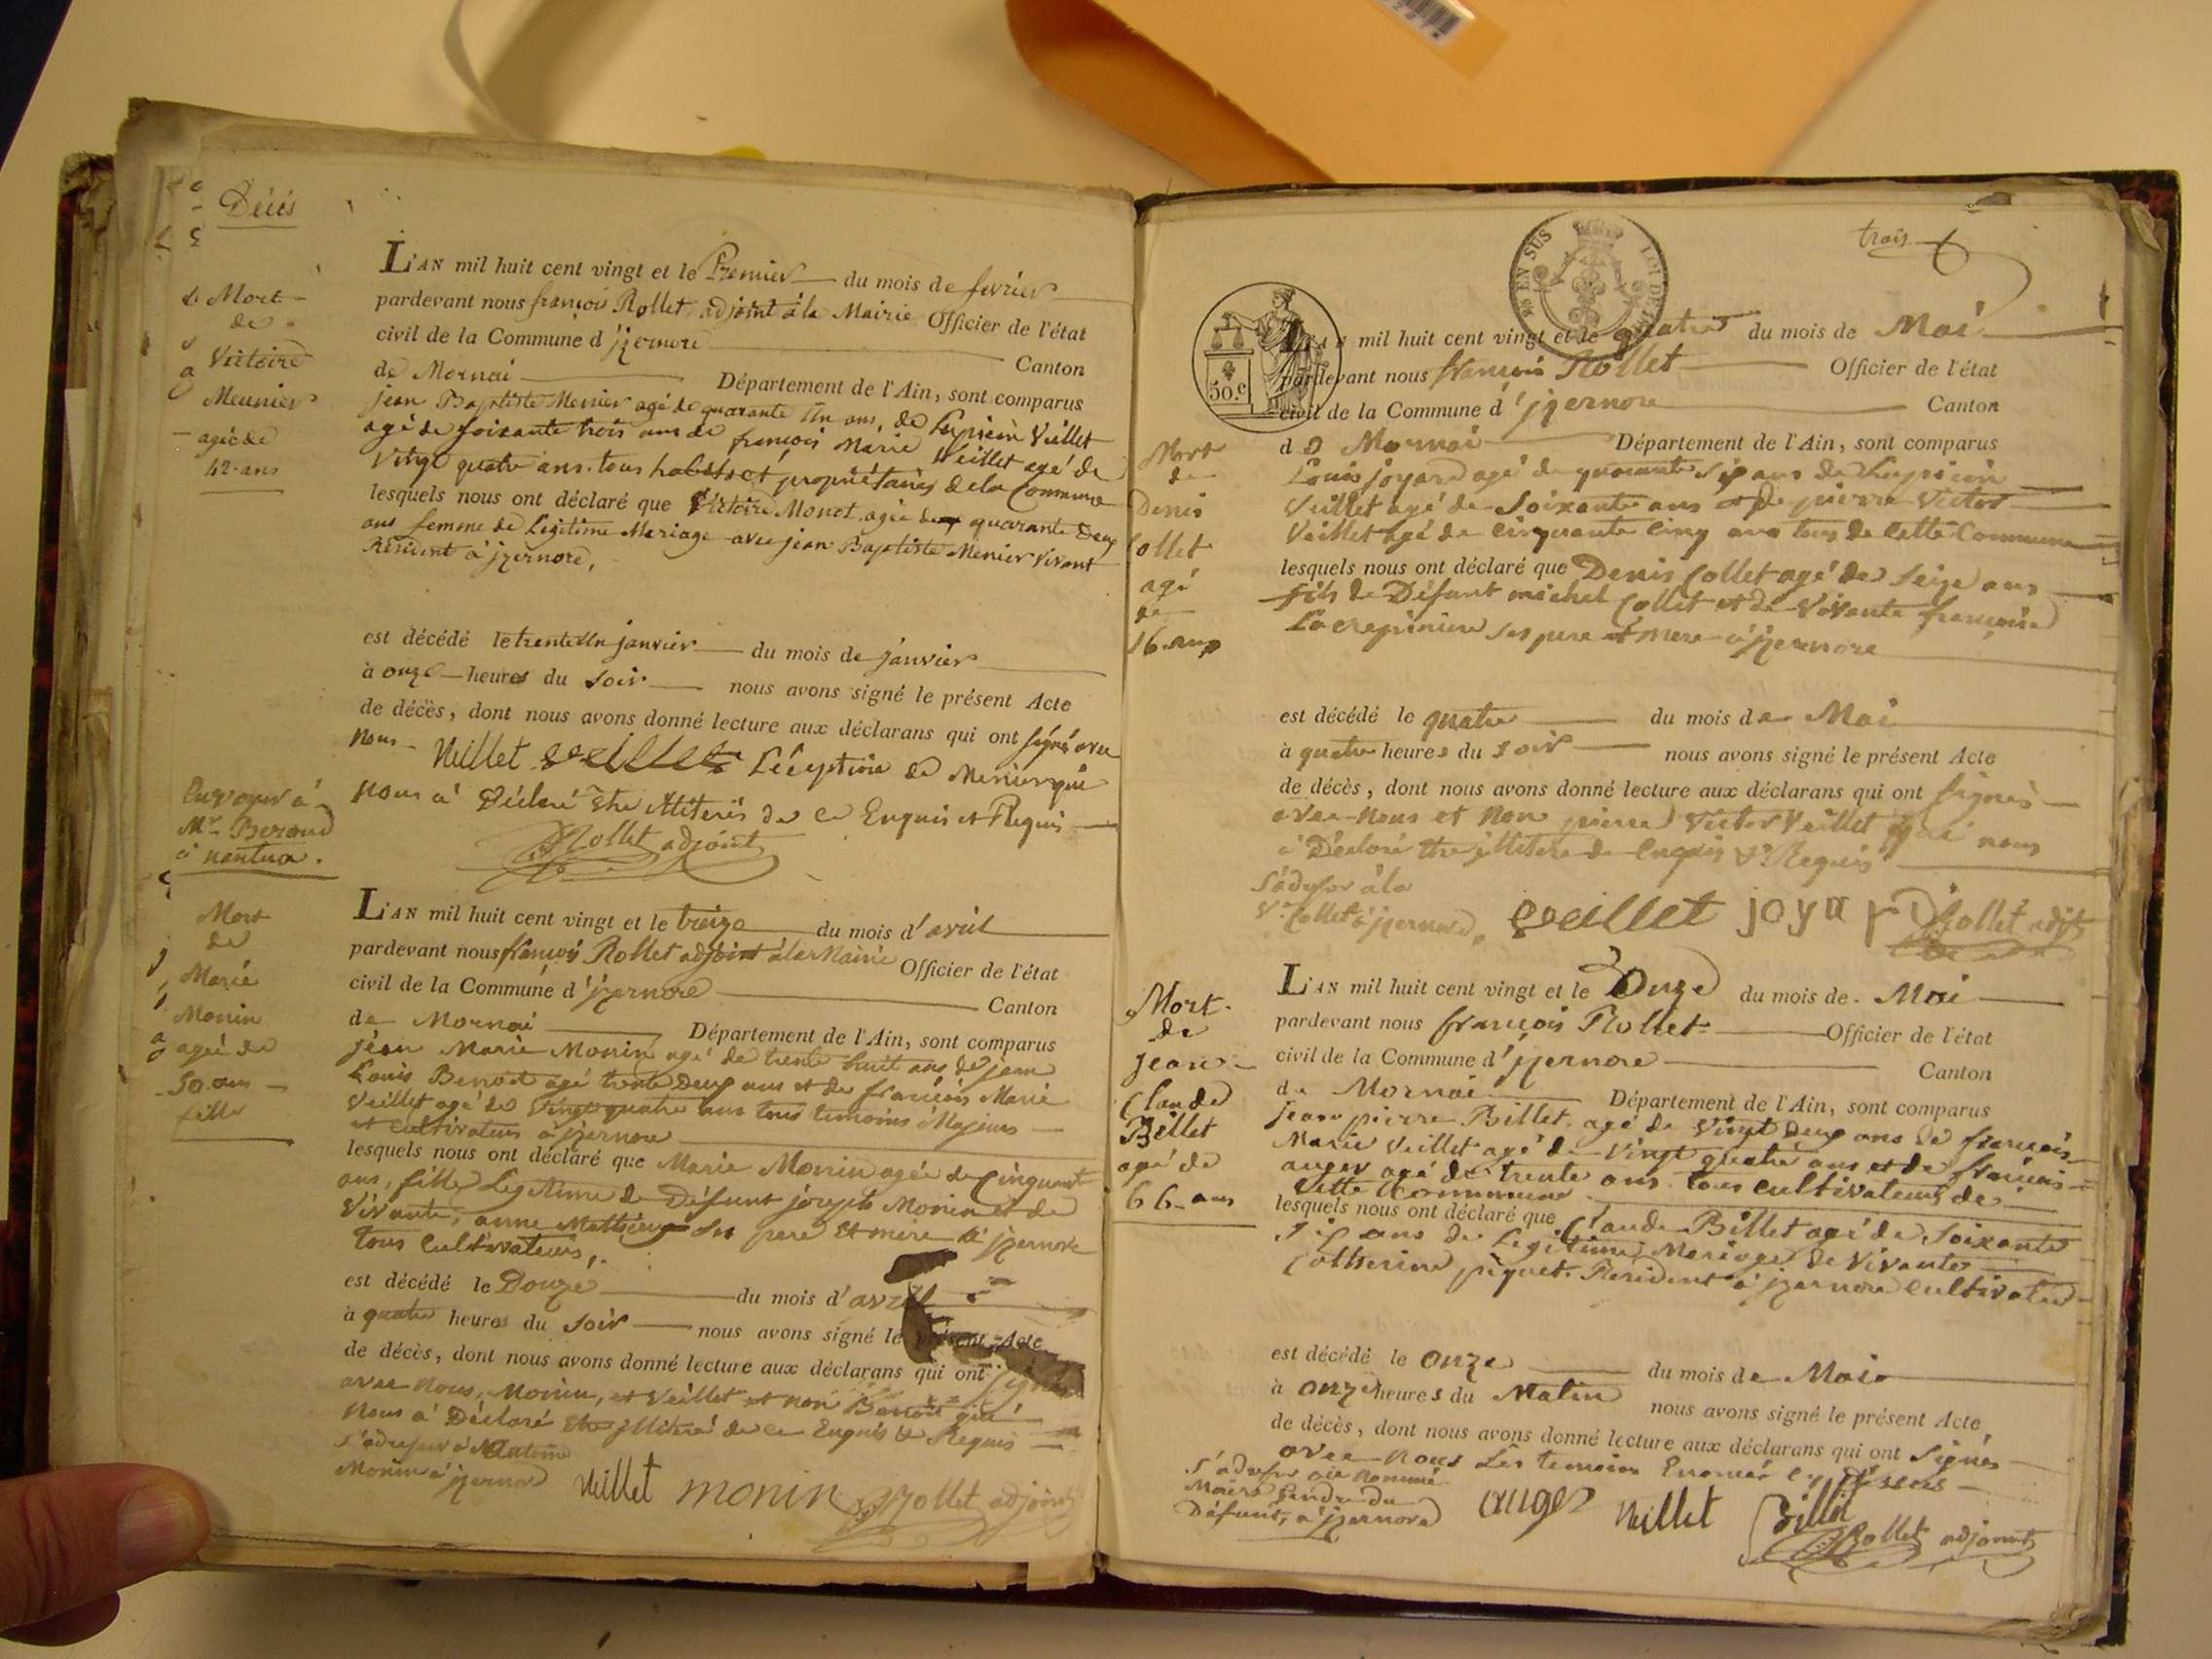 Décés
Mort
de
Victoire
Meunier
agée de
42 ans
L'AN mil huit cent vingt et le Premier du mois de fevrier
pardevant nous françois Rollet adjoint à la Mairie Officier de l'état
civil de la Commune d'izernore
Canton
de Mornai Département de l'Ain, sont comparus
jean Baptiste Menier agé de quarante un ans, de Lupicin Veillet
agé de soixante trois ans de françois Marie Veillet agé de
Vingt quatre ans. tous propriétaires de la Commune
lesquels nous ont déclaré que Victoire Monet agée de quarante Deux
ans femme de Legitime Mariage avec jean Baptiste Menier Vivant
Résident à izernore,
est décédé le trente Un janvier du mois de janvier
à onze heures du soir nous avons signé le présent Acte
de décès, dont nous avons donné lecture aux déclarans qui ont signé avec
nous Veillet veillet L'éxeptione de Menier qui
nous à Déclaré Etre illiterés de ce Enquis et Requis
Rollet adjoint
Envoyer à
Mr. Beroud
à nantua.
Mort
de
Marie
Monin
ageé de
50 ans
fille
L'AN mil huit cent vingt et le treize du mois d'avril
pardevant nous françois Rollet adjoint à la Mairie Officier de l'état
civil de la Commune d'izernore
Canton
de Mornai Département de l'Ain, sont comparus
jean Marie Monin agé de trente huit ans de jean
Louis Benoit agé trente Deux ans et de françois Marie
Veillet agé de Vingt quatre ans tous temoins Majeurs
et Cultivateurs à izernore
lesquels nous ont déclaré que Marie Monin agée de Cinquant
ans, fille Legitime de Défunt joseph Monin et de
Vivante, anne Mathieux ses pere et mere à izernore
tous Cultivateurs,
est décédé le Douze du mois d'avril
à quatre heures du soir nous avons signé le présent Acte
de décès, dont nous avons donné lecture aux déclarans qui ont signés
avec nous, Monin, et Veillet et non Benoit qui
nous à Déclaré Etre illiteré de ce Enquis & Requis
s'adresser à Antoine
Monin à izernore Veillet monin Rollet adjoint
trois
EN SUS
50.c
Mort
de
Denis
Collet
agé
de
16. ans
L'AN mil huit cent vingt et le quatre du mois de Mai
pardevant nous françois Rollet Officier de l'état
civil de la Commune d'izernore Canton
de Mornai Département de l'Ain, sont comparus
Louis joyard agé de quarante six ans de Lupicin
Veillet agé de Soixante ans et de pierre Victor
Veillet agé de Cinquante Cinq ans tous de Cette Commune
lesquels nous ont déclaré que Denis Collet agé de Seize ans
fils de Défunt michel Collet et de Vivante françoise
Lacrepiniere ses pere et mere à izernore
est décédé le quatre du mois de Mai
à quatre heures du soir nous avons signé le présent Acte
de décès, dont nous avons donné lecture aux déclarans qui ont signés
avec nous et non pierre Victor Veillet qui nous
à Déclaré etre illiteré de enquis & Requis
S'adresser à la
Ve. Collet à izernore, veillet joyard Rollet adjt
Mort
de
jean
Claude
Billet
agé de
66 ans
L'AN mil huit cent vingt et le Onze du mois de Mai
pardevant nous françois Rollet Officier de l'état
civil de la Commune d'izernore
Canton
de Mornai Département de l'Ain, sont comparus
jean pierre Billet agé de Vingt Deux ans de françois
Marie Veillet agé de Vingt quatre ans et de françois
auger agé de trente ans tous cultivateurs de
Cette Commune
lesquels nous ont déclaré que Claude Billet agé de Soixante
six ans de Legitime Mariage de Vivante
Catherine piquet Resident à izernore Cultivateur
est décédé le onze du mois de Mai
à onze heures du Matin nous avons signé le présent Acte
de décès, dont nous avons donné lecture aux déclarans qui ont signés
avec nous Les temoins
S'adresser au nommé
gendre du
Défunt, à izernore auger Veillet Billet
Rollet adjoint